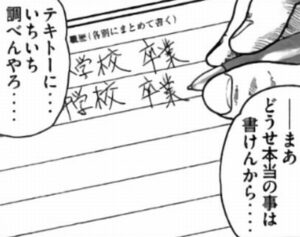 ――まあ
どうせ本当の事は
書けんから‥‥
テキトーに‥‥
いちいち
調べんやろ‥‥
職歴(各別にまとめて書く)
学校 卒業
学校 卒業